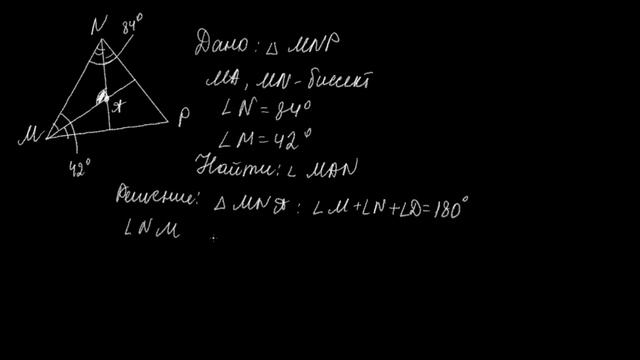 N 84°
A
M
P
42°
Дано: △ MNP
MA, MN - биссект
∠N = 84°
∠M = 42°
Найти: ∠ MAN
Решение: △ MNA: ∠M + ∠N + ∠D = 180°
∠NM